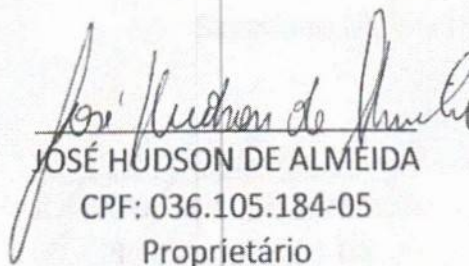 José Hudson de Almeida
JOSÉ HUDSON DE ALMEIDA
CPF: 036.105.184-05
Proprietário